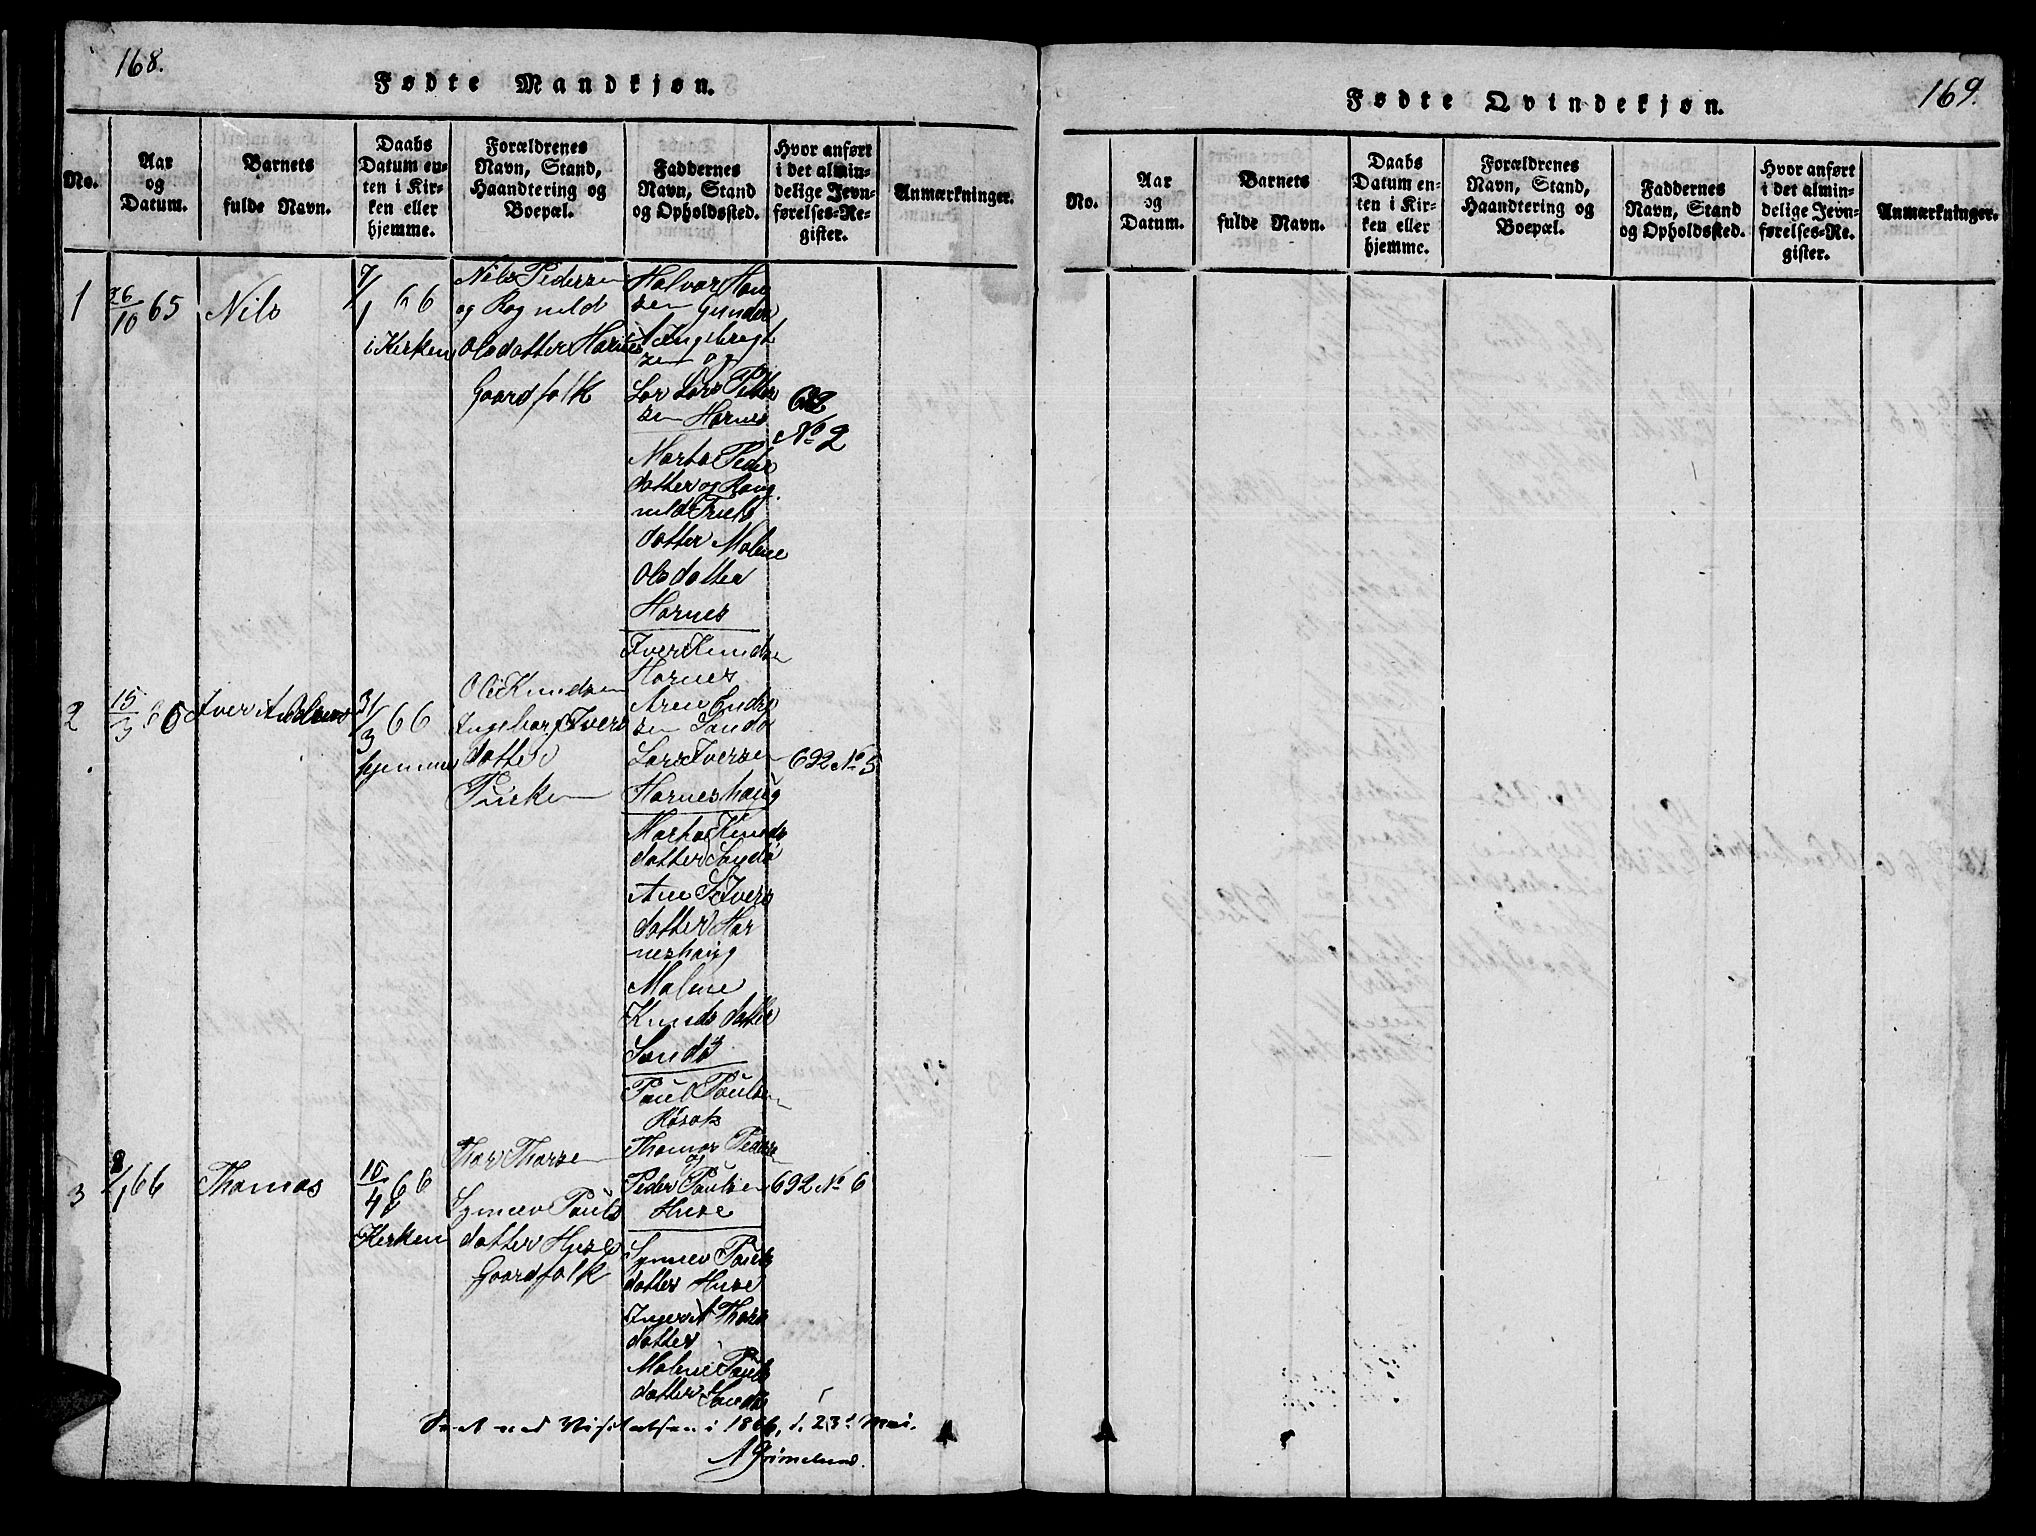 168.
Fødte Mandkjøn.
No.
Aar
og
Datum.
Barnets
fulde Navn.
Daabs
Datum en-
ten i Kir-
ken eller
hjemme.
Forældrenes
Navn, Stand,
Haandtering og
Boepæl.
Faddernes
Navn, Stand
og Opholdssted.
Hvor anført
i det almin-
delige Jevn-
førelses-Re-
gister.
Anmærkninger.
1
26/10 65
Nils
7/1 66
i Kirken
Nils Pedersen
og Ragnild
Olsdatter Harnes
Gaardfolk
Halvar Han
sen Gunder
Ingebregt
sen og
Lars Petter
sen Harnes
Marta Peder
datter og Rang
nild Truls
datter Malene
Olsdatter
Harnes
692
No 2
2
15/3 66
Iver Andreas
31/3 66
hjemme
Ole Knudsen
Ingeborg Ivers
datter
Iver Knudsen
Harnes
Arne Endre
sen Sandø
Lars Iversen
Harneshaug
Marta Knuds
datter Sandø
Ane S Ivers
datter Har
neshaug
Malene
Knudsdatter
Sandø
692 No 5
3
2/1 66
Thomas
15/4 66
Kirken
Thor Thorsen
Synnev Pouls
datter Huse
Gaardfolk
Poul Poulsen
Røsok
Thomas Peders
og
Peder Poulsen
Huse
Synnev Pouls
datter Huse
Inger A Thors
datter
Malene Pouls
datter Sandø
692 No 6
Seet ved Visitatsen i 1866, d. 23d Mai.
A Grimelund.
169.
Fødte Qvindekjøn.
No.
Aar
og
Datum.
Barnets
fulde Navn.
Daabs
Datum en-
ten i Kir-
ken eller
hjemme.
Forældrenes
Navn, Stand,
Haandtering og
Boepæl.
Faddernes
Navn, Stand
og Opholdssted.
Hvor anført
i det almin-
delige Jevn-
førelses-Re-
gister.
Anmærkninger.